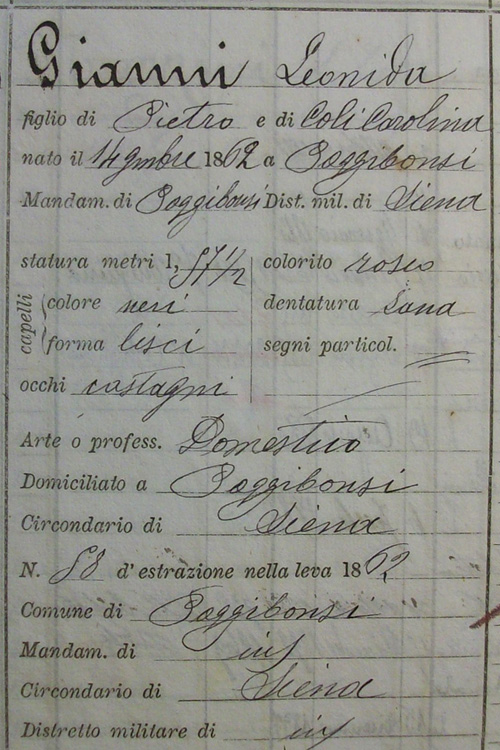 Gianni Leonida
figlio di Pietro e di Coli Carolina
nato il 14 9mbre 1862 a Poggibonsi
Mandam. di Poggibonsi Dist. mil. di Siena
statura metri 1, 57 1/2 colorito roseo
capelli
colore neri dentatura sana
forma lisci segni particol.
occhi castagni
Arte o profess. Domestico
Domiciliato a Poggibonsi
Circondario di Siena
N. 58 d'estrazione nella leva 1862
Comune di Poggibonsi
Mandam. di
Circondario di Siena
Distretto militare di